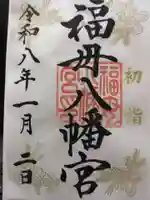 初詣
福母八幡宮
令和八年一月二日